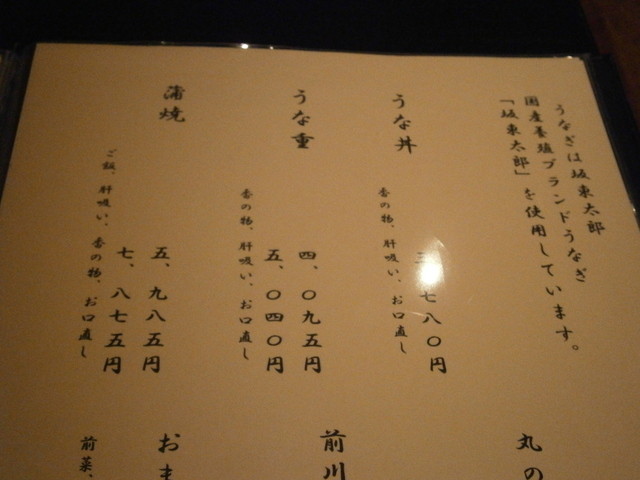 うなぎは坂東太郎
国産養殖ブランドうなぎ
「坂東太郎」を使用しています。
うな丼
三、七八〇円
香の物、肝吸い、お口直し
うな重
四、〇九五円
五、〇四〇円
香の物、肝吸い、お口直し
蒲焼
五、九八五円
七、八七五円
ご飯、肝吸い、香の物、お口直し
丸の
前川
おま
前菜、